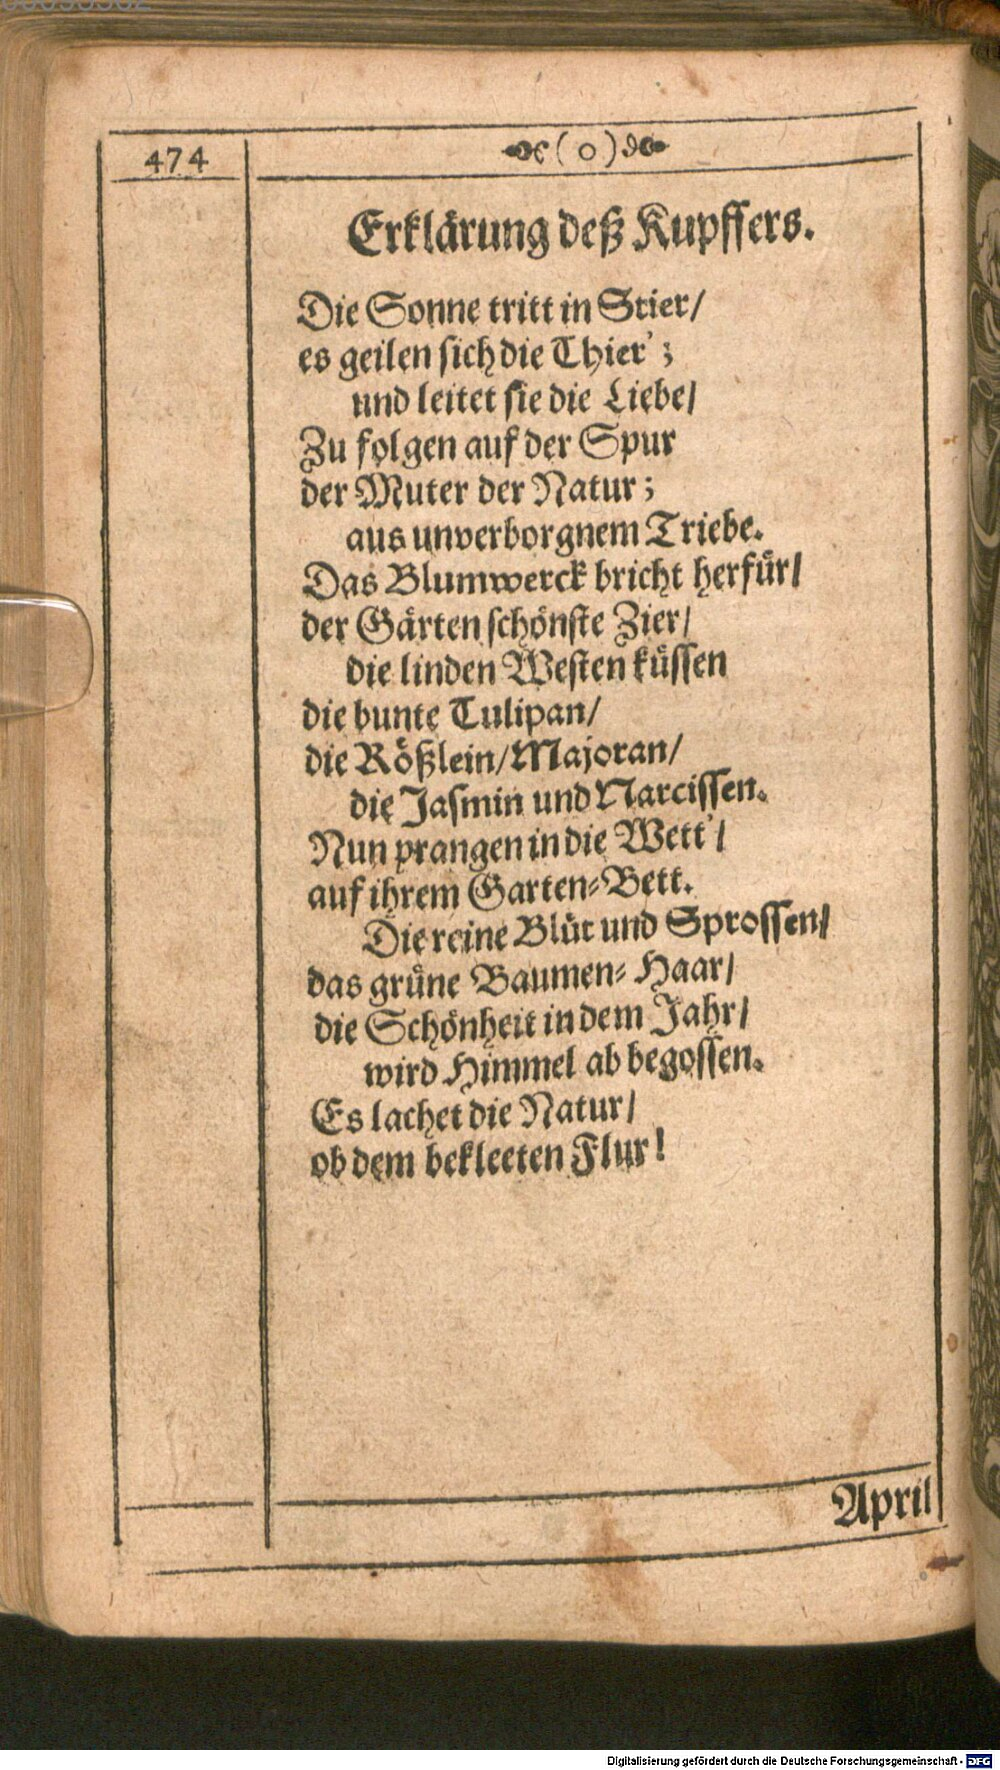 474
( o )
Erklärung deß Kupffers.
Die Sonne tritt in Stier/
es geilen sich die Thier’;
und leitet sie die Liebe/
Zu folgen auf der Spur
der Muter der Natur;
aus unverborgnem Triebe.
Das Blumwerck bricht herfür/
der Gärten schönste Zier/
die linden Westen küssen
die bunte Tulipan/
die Rößlein/Majoran/
die Jasmin und Narcissen.
Nun prangen in die Wett’/
auf ihrem Garten-Bett.
Die reine Blüt und Sprossen/
das grüne Baumen-Haar/
die Schönheit in dem Jahr/
wird Himmel ab begossen.
Es lachet die Natur/
ob dem bekleeten Flur!
April
Digitalisierung gefördert durch die Deutsche Forschungsgemeinschaft - DFG